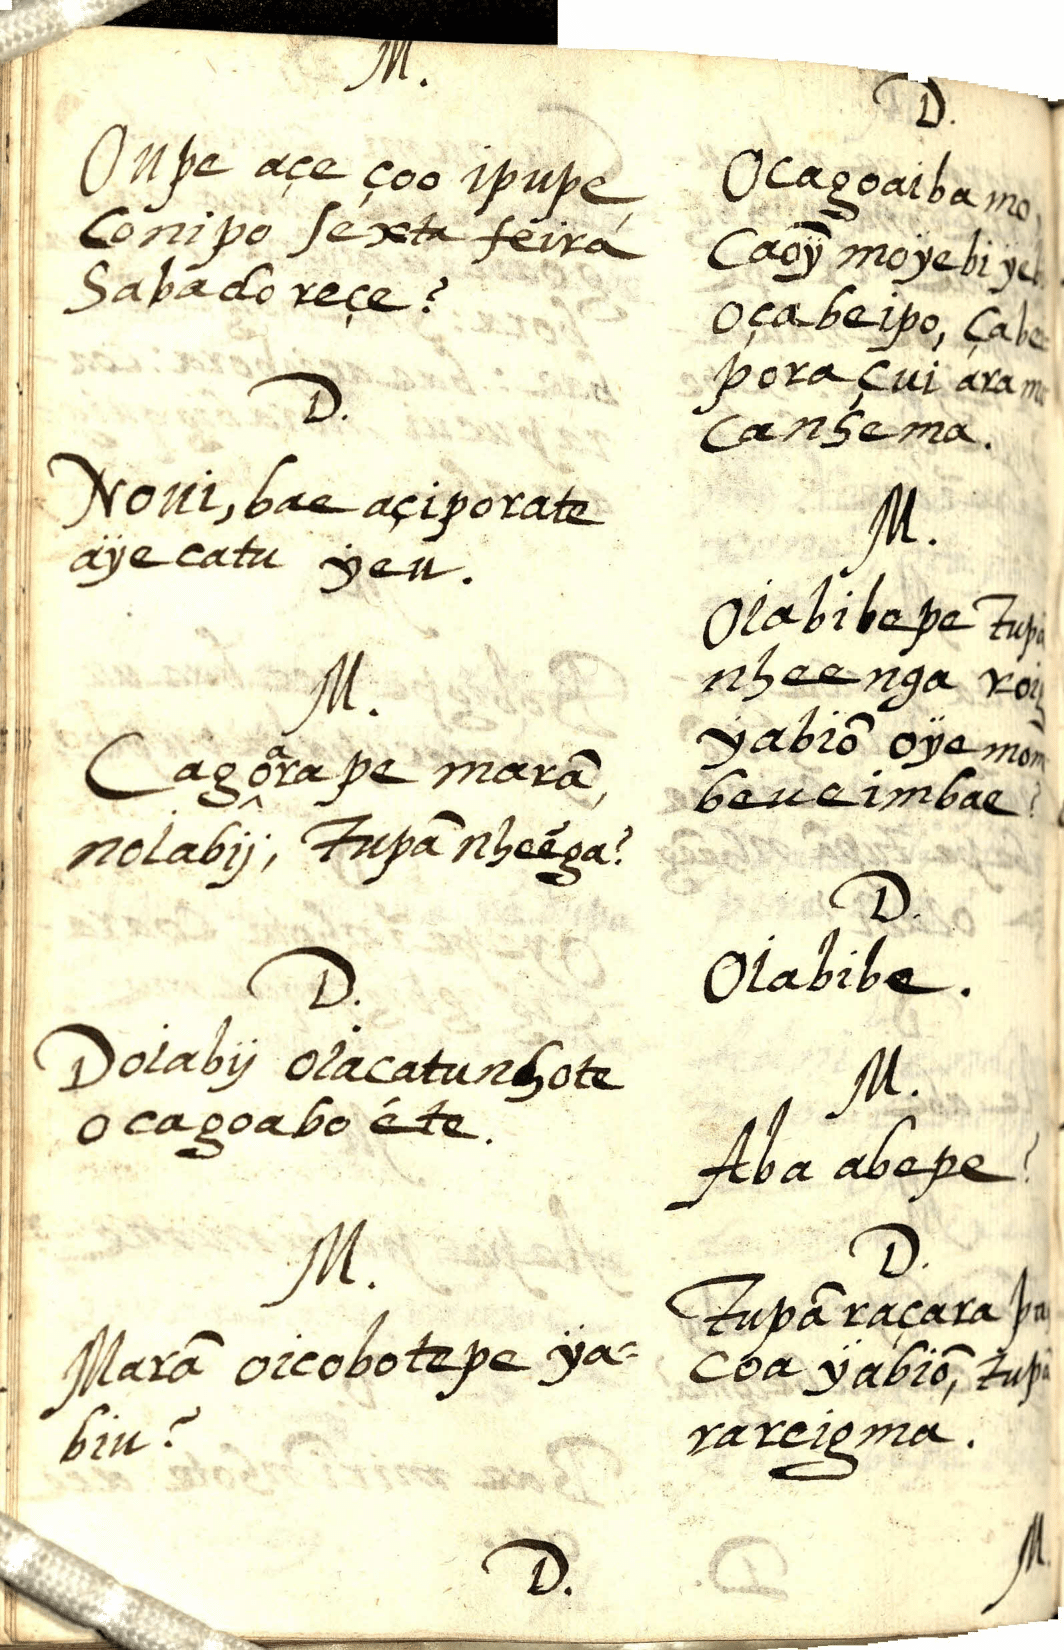 M.
Oupe açe çoo ipupe,
Conipo sexta feira
Sabado reçe?
D.
Noui, bae açiporate
aÿe catu ÿeu.
M.
Cagoara pe marã,
noiabij, Tupã nheéga?
D.
Doiabij oiacatunhote
ocagoabo éte.
M.
Marã oicobotepe ÿa-
biu?
D.
D.
Ocagoaiba mo,
Caoÿ moÿebi
oçabeipo,
pora çui
Cansema.
M.
Oiabibepe Tupã
nheenga
ÿabiõ
beueimbae?
D.
Oiabibe.
M.
Aba abepe?
D.
Tupã raçara
coa ÿabiõ, tupã
rareigma.
M.